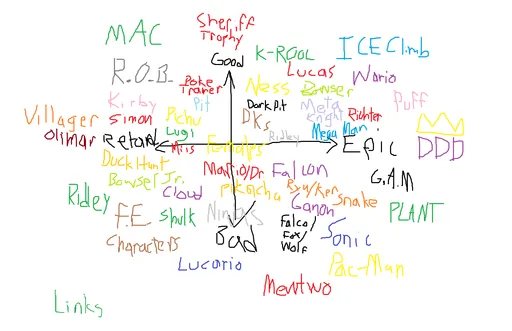 Sheriff
Trophy
MAC
Good
K-ROOL
ICE Climb
R.O.B.
Poke
Trainer
Ness
Lucas
Bowser
Wario
Kirby
Pit
Dark Pit
Meta
Knight
Puff
Villager
Simon
Pichu
DKs
Richter
Olimar
Retard
Lugi
Ridley
Mega Man
Epic
DDD
Miis
Females
Duck Hunt
Mario/Dr
Falcon
G.A.M
Bowser Jr.
Pikachu
Ryu/Ken
Snake
Ridley
Cloud
Ganon
PLANT
F.E
Shulk
Ninjas
Falco/
Fox/
Wolf
Characters
Bad
Sonic
Lucario
Pac-Man
Mewtwo
Links